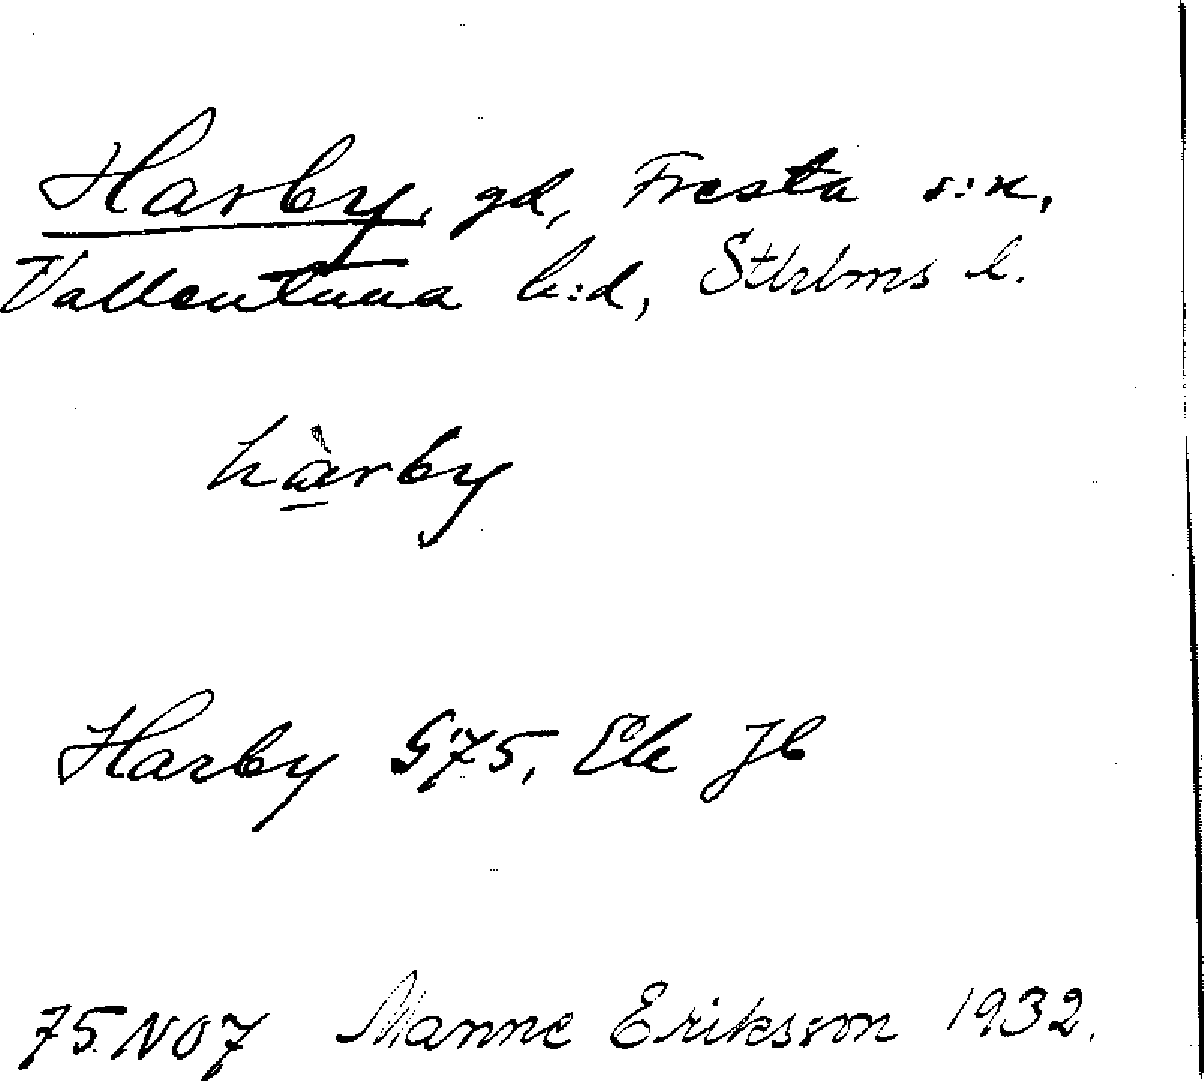 Harby, gd, Fresta s:n,
Vallentuna h:d, Sthlms l.
hàrby
Harby G75, Ek Jb
75.NO7 Manne Eriksson 1932.